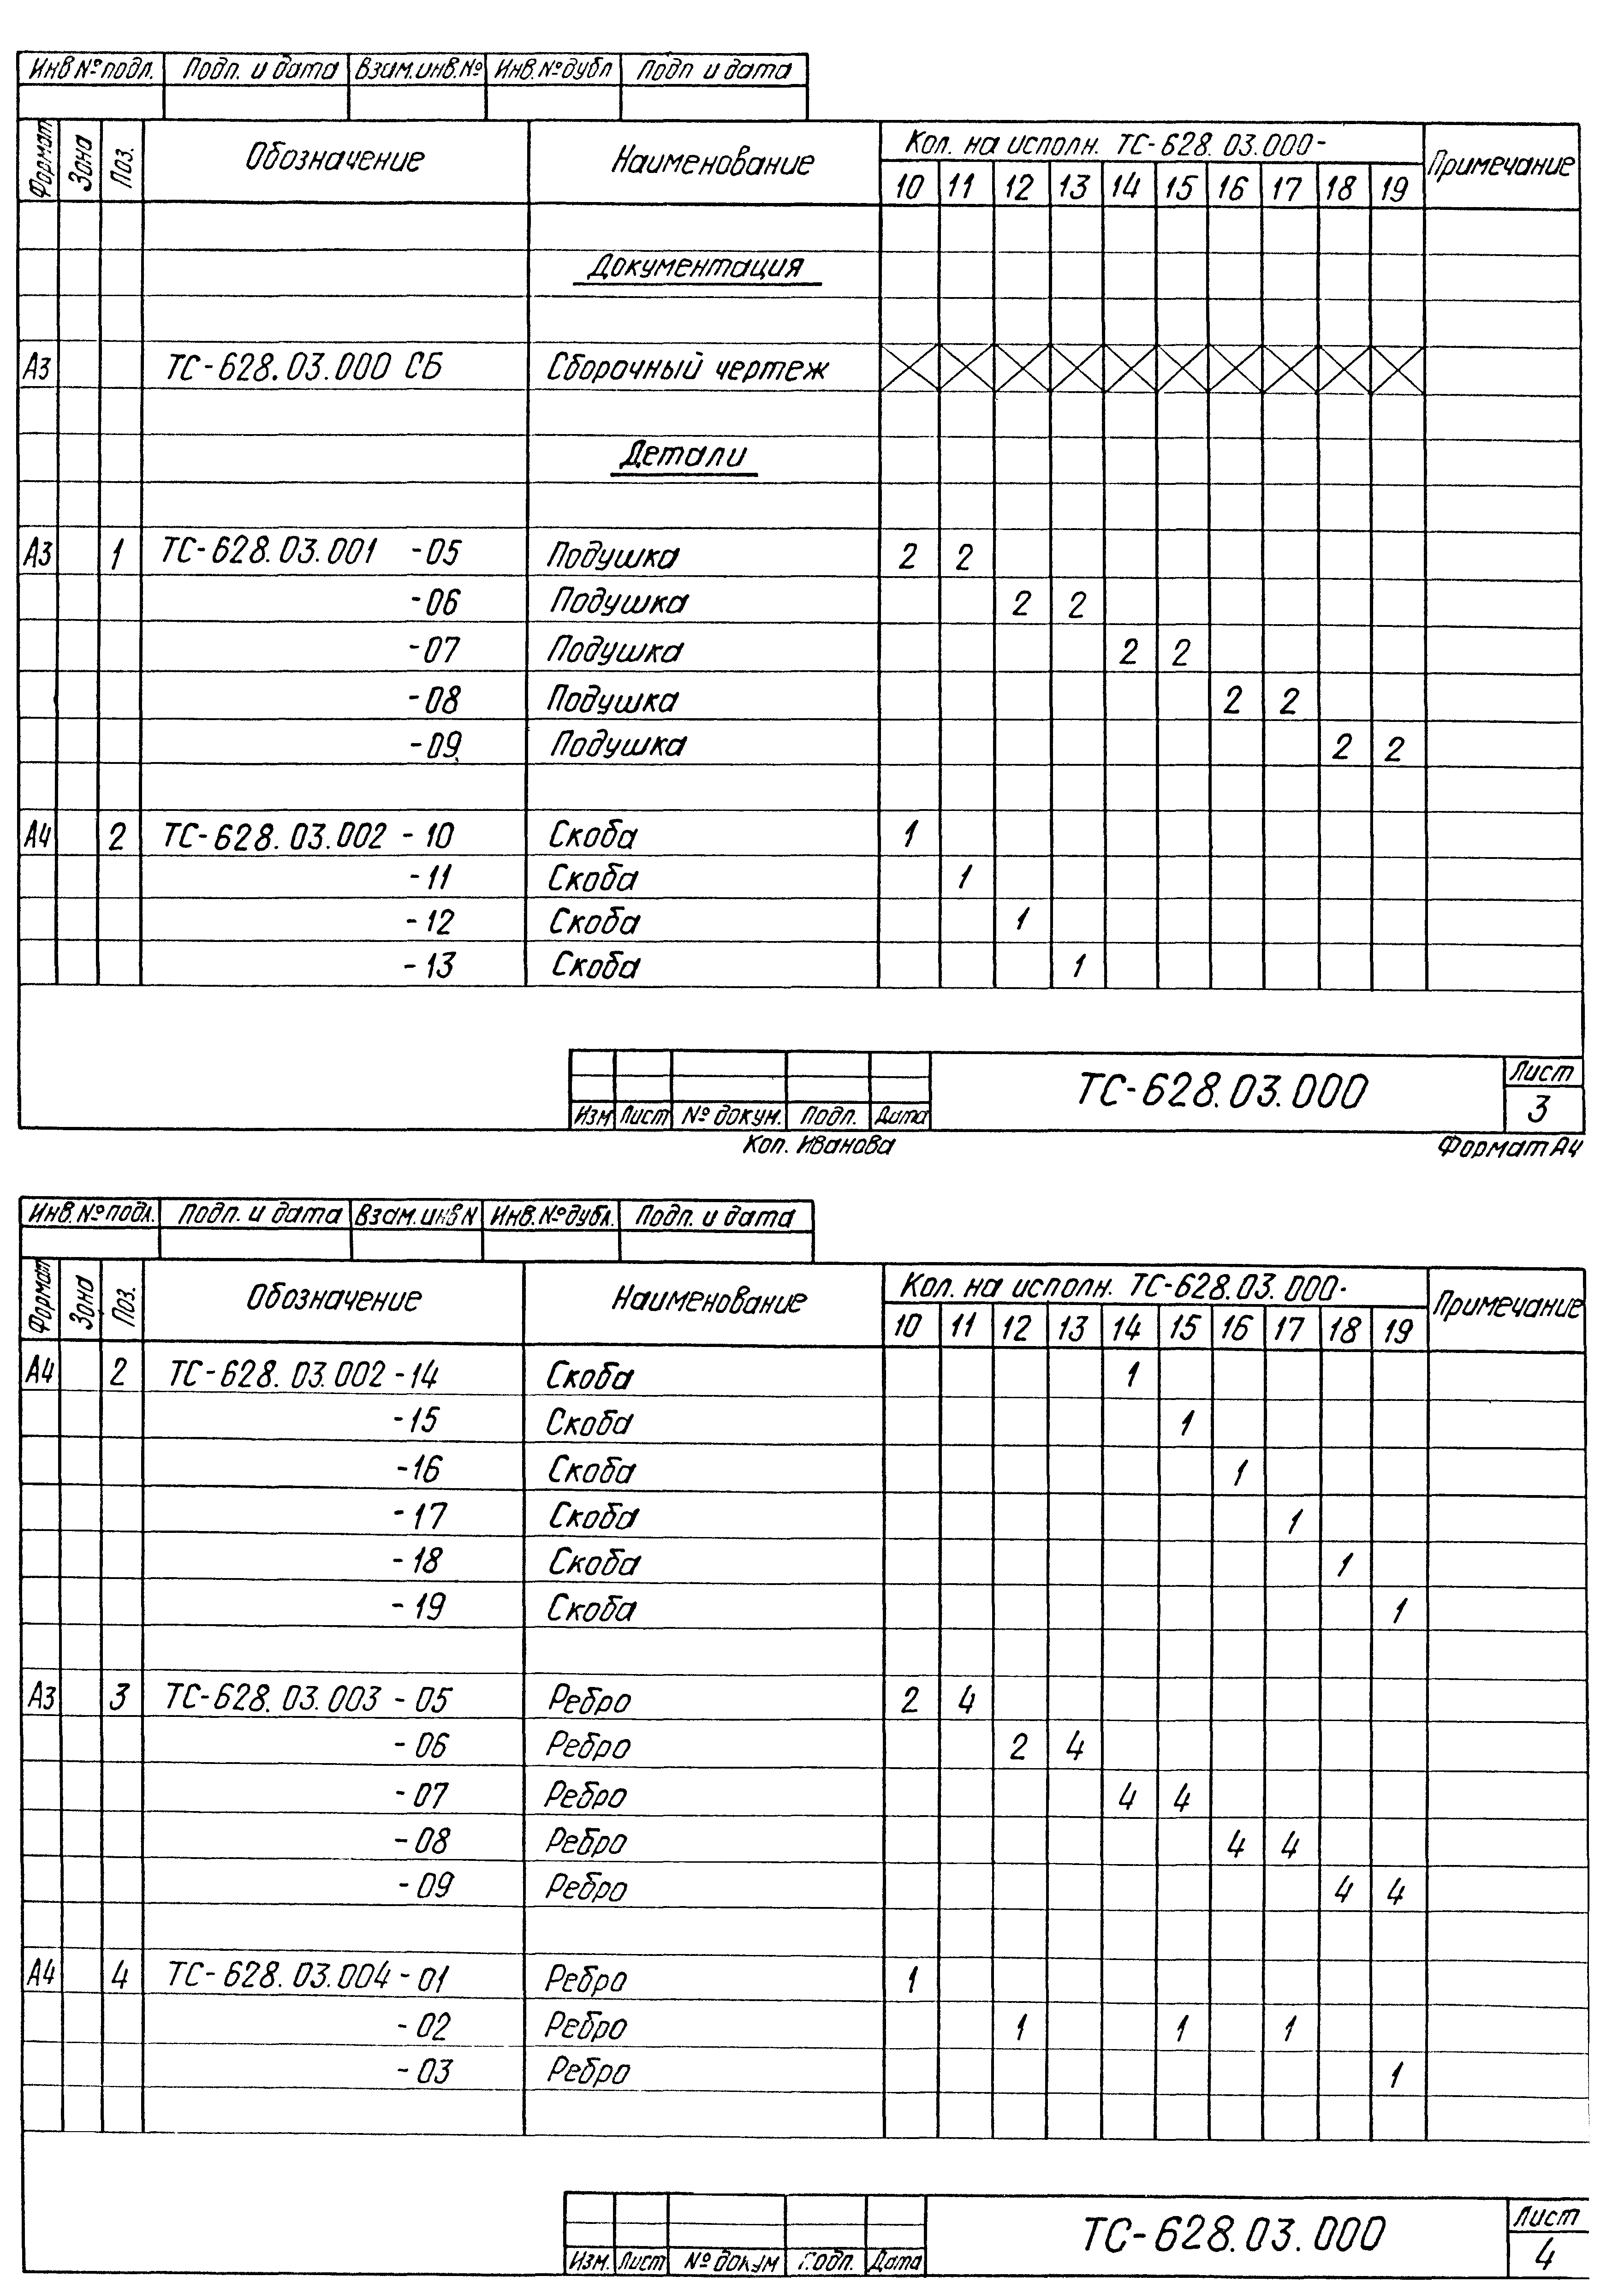 Инв № подл. Подп. и дата Взам.инв.№ Инв.№дубл Подп и дата
Формат Зона Поз. Обозначение Наименование Кол. на исполн. ТС-628.03.000- Примечание
10 11 12 13 14 15 16 17 18 19
Документация
А3 ТС-628.03.000 СБ Сборочный чертеж
Детали
А3 1 ТС-628.03.001 -05 Подушка 2 2
-06 Подушка 2 2
-07 Подушка 2 2
-08 Подушка 2 2
-09 Подушка 2 2
А4 2 ТС-628.03.002 -10 Скоба 1
-11 Скоба 1
-12 Скоба 1
-13 Скоба 1
ТС-628.03.000 Лист
Изм Лист № докум. Подп. Дата 3
Коп. Иванова Формат А4
Инв.№подл. Подп. и дата Взам.инв N Инв.№дубл. Подп. и дата
Формат Зона Поз. Обозначение Наименование Кол. на исполн. ТС-628.03.000- Примечание
10 11 12 13 14 15 16 17 18 19
А4 2 ТС-628.03.002 -14 Скоба 1
-15 Скоба 1
-16 Скоба 1
-17 Скоба 1
-18 Скоба 1
-19 Скоба 1
А3 3 ТС-628.03.003 -05 Ребро 2 4
-06 Ребро 2 4
-07 Ребро 4 4
-08 Ребро 4 4
-09 Ребро 4 4
А4 4 ТС-628.03.004 -01 Ребро 1
-02 Ребро 1 1 1
-03 Ребро 1
ТС-628.03.000 Лист
Изм. Лист № докум Подп. Дата 4